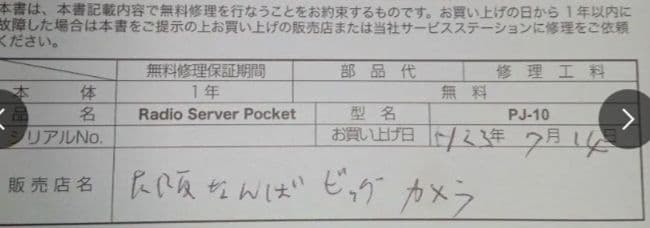 本書は、本書記載内容で無料修理を行なうことをお約束するものです。お買い上げの日から1年以内に
故障した場合は本書をご提示の上お買い上げの販売店または当社サービスステーションに修理をご依頼
ください。
無料修理保証期間 部品代 修理工料
本体 1年 無料
品名 Radio Server Pocket 型名 PJ-10
シリアルNo. お買い上げ日 H23年 7月 14日
販売店名 大阪なんば ビックカメラ